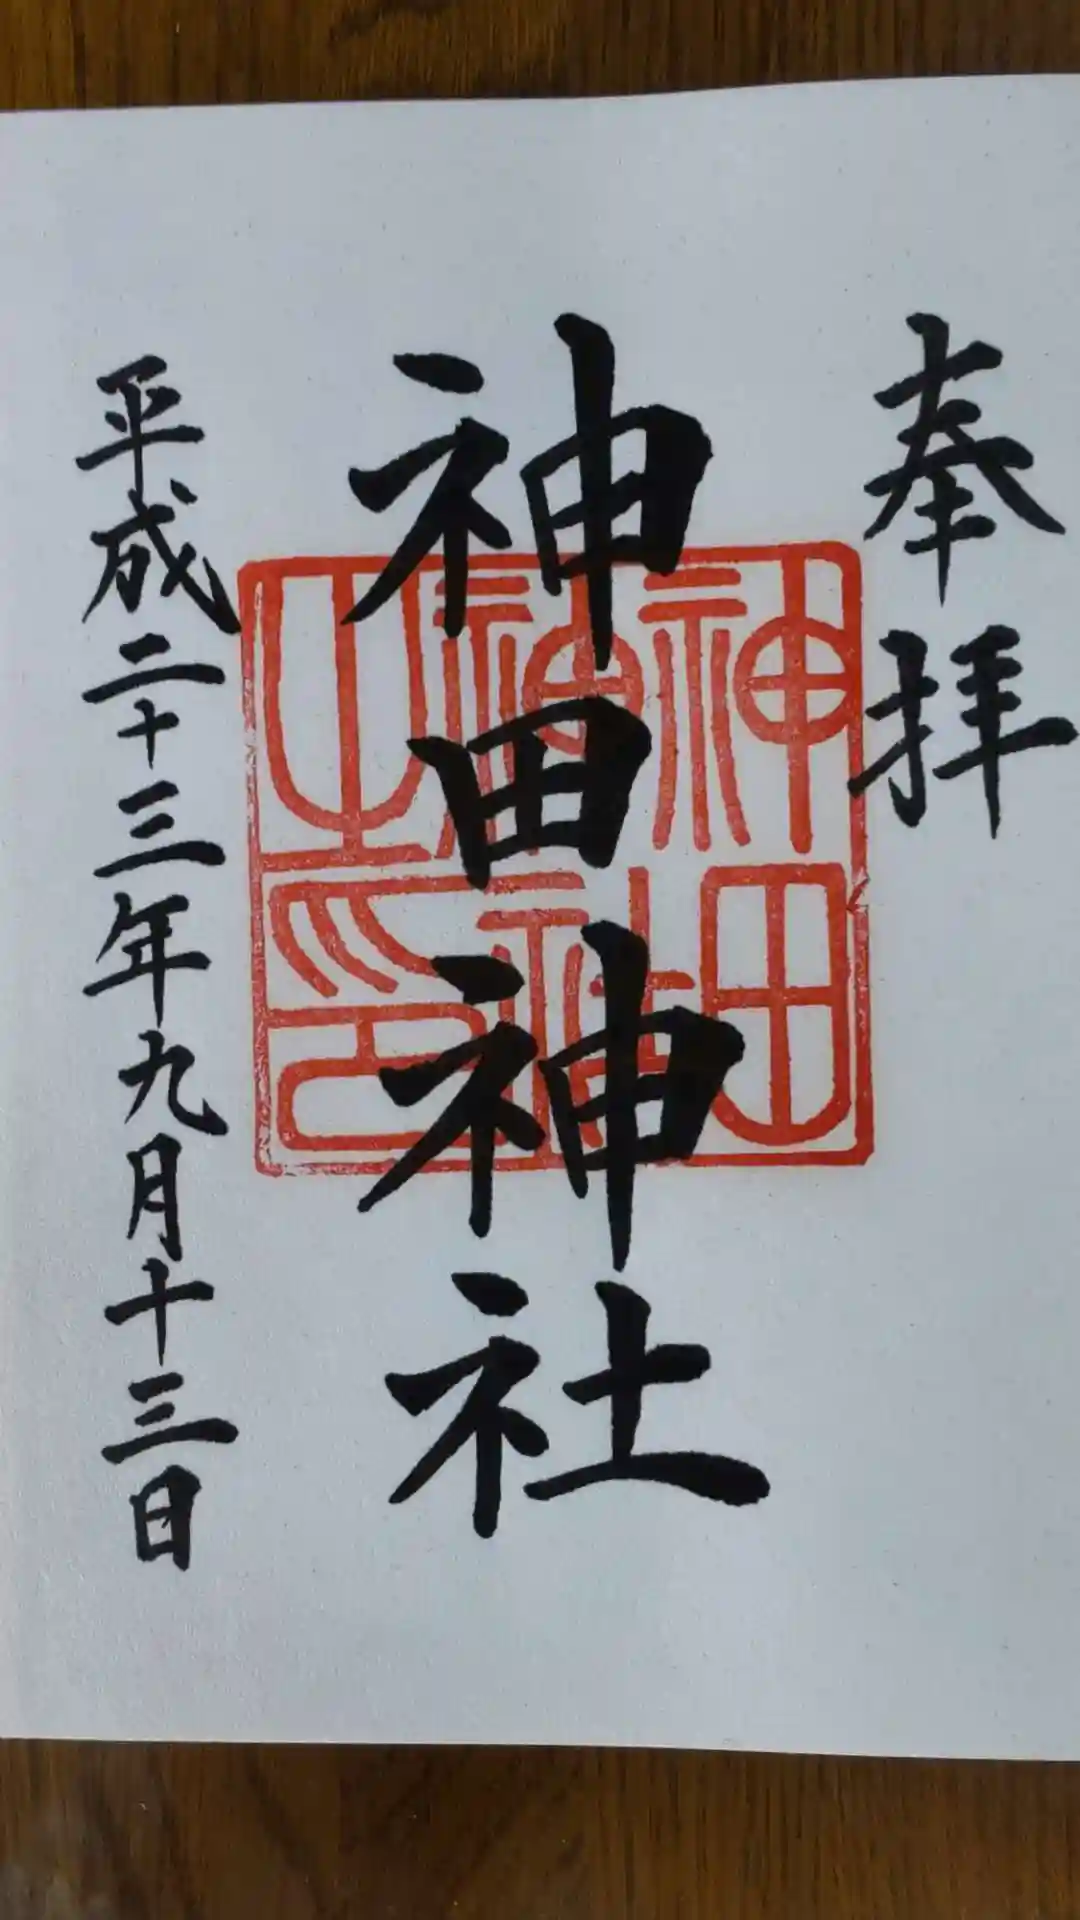 奉拝
神田神社
神田神社之印
平成二十三年九月十三日